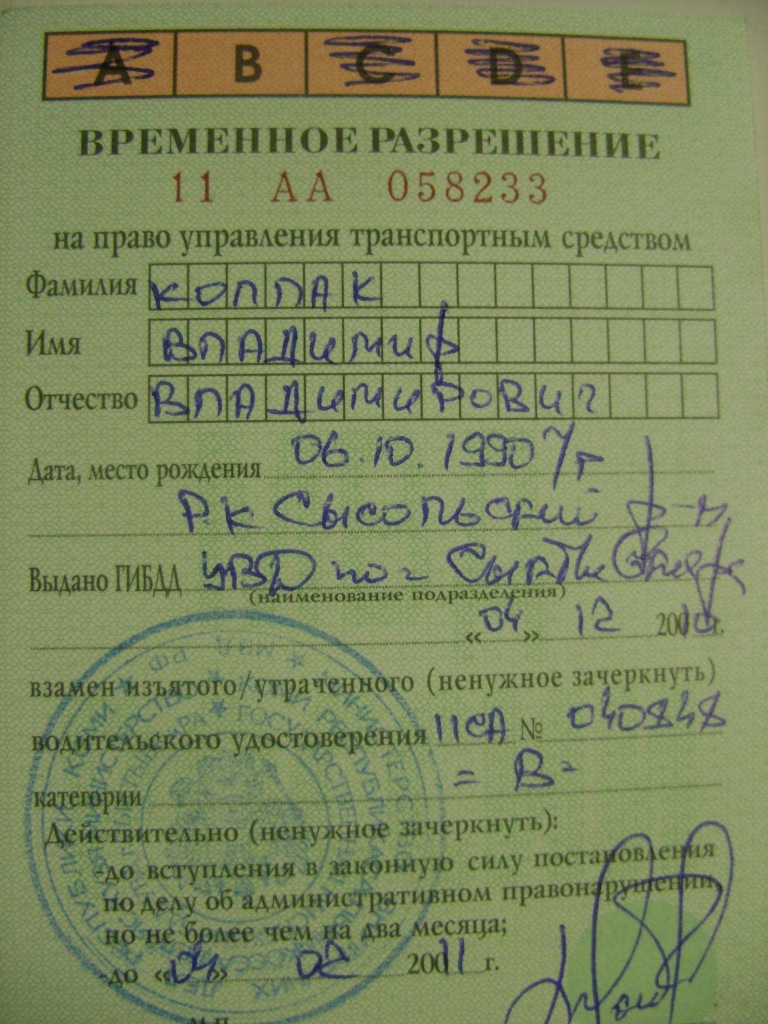 A B C D E
ВРЕМЕННОЕ РАЗРЕШЕНИЕ
11 АА 058233
на право управления транспортным средством
Фамилия КОЛПАК
Имя ВЛАДИМИР
Отчество ВЛАДИМИРОВИЧ
Дата, место рождения 06.10.1990 г
РК Сысольский р-н
Выдано ГИБДД УВД по г
(наименование подразделения)
«04» 12 2010 г.
взамен изъятого/утраченного (ненужное зачеркнуть)
водительского удостоверения 11СА № 040848
категории = В =
Действительно (ненужное зачеркнуть):
-до вступления в законную силу постановления
по делу об административном правонарушении,
но не более чем на два месяца;
-до «04» 02 2011 г.
М.П.